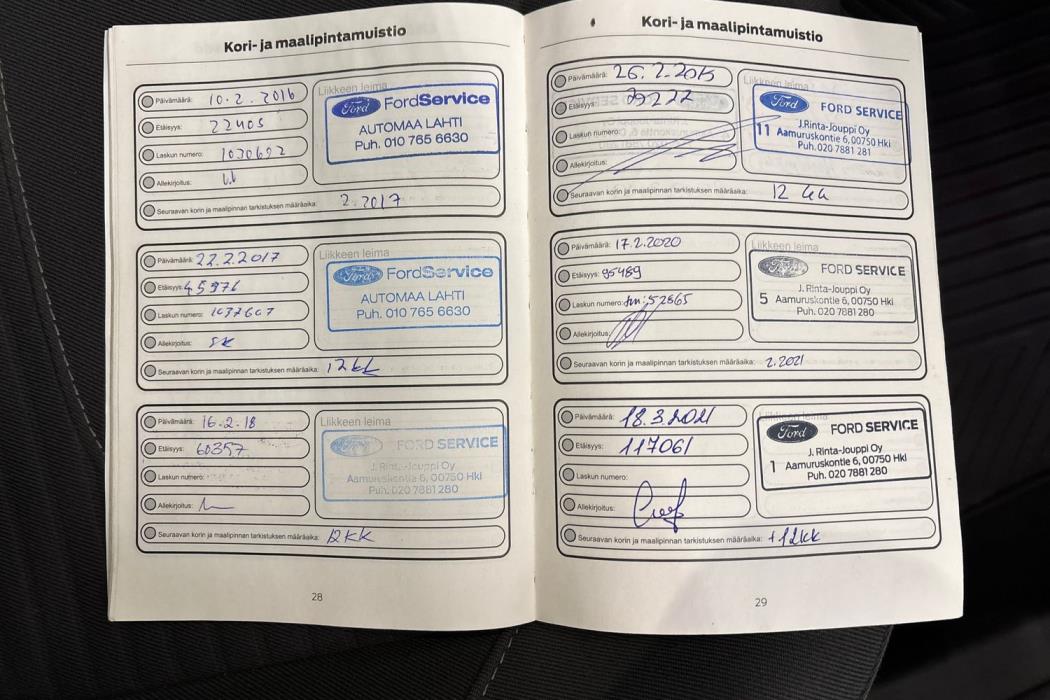 Kori- ja maalipintamuistio
Päivämäärä: 10.2.2016
Etäisyys: 22405
Laskun numero: 1030692
Allekirjoitus:
Seuraavan korin ja maalipinnan tarkistuksen määräaika: 2.2017
Liikkeen leima
Ford FordService
AUTOMAA LAHTI
Puh. 010 765 6630
Päivämäärä: 22.2.2017
Etäisyys: 45976
Laskun numero: 1037607
Allekirjoitus: SK
Seuraavan korin ja maalipinnan tarkistuksen määräaika: 12KK
Liikkeen leima
Ford FordService
AUTOMAA LAHTI
Puh. 010 765 6630
Päivämäärä: 16.2.18
Etäisyys: 60357
Laskun numero:
Allekirjoitus:
Seuraavan korin ja maalipinnan tarkistuksen määräaika: 12KK
Liikkeen leima
Ford FORD SERVICE
J. Rinta-Jouppi Oy
Aamuruskontie 6, 00750 Hki
Puh. 020 7881 280
28
Kori- ja maalipintamuistio
Päivämäärä:
Etäisyys:
Laskun numero:
Allekirjoitus:
Seuraavan korin ja maalipinnan tarkistuksen määräaika: 12 kk
Liikkeen leima
Ford FORD SERVICE
J.Rinta-Jouppi Oy
11 Aamuruskontie 6,00750 Hki
Puh. 020 7881 281
Päivämäärä: 17.2.2020
Etäisyys: 95489
Laskun numero:
Allekirjoitus:
Seuraavan korin ja maalipinnan tarkistuksen määräaika: 2.2021
Liikkeen leima
Ford FORD SERVICE
J. Rinta-Jouppi Oy
5 Aamuruskontie 6, 00750 Hki
Puh. 020 7881 280
Päivämäärä: 18.3.2021
Etäisyys: 117061
Laskun numero:
Allekirjoitus:
Seuraavan korin ja maalipinnan tarkistuksen määräaika: +12kk
Liikkeen leima
Ford FORD SERVICE
J. Rinta-Jouppi Oy
1 Aamuruskontie 6, 00750 Hki
Puh. 020 7881 280
29